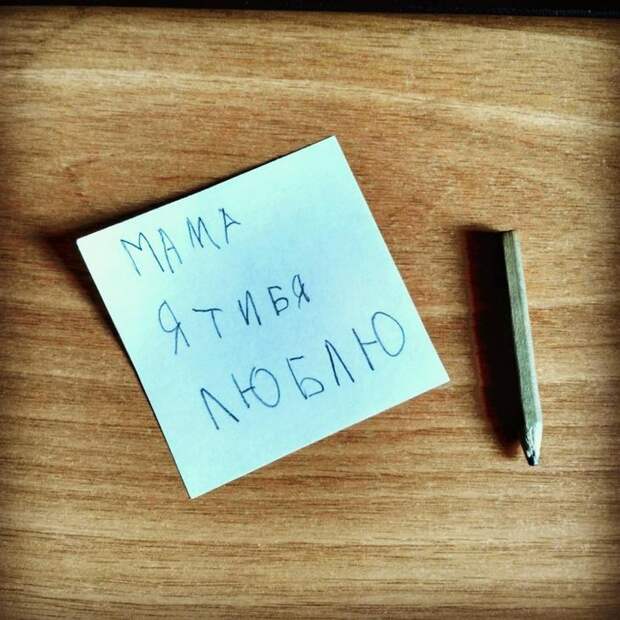 МАМА
Я ТИБЯ
ЛЮБЛЮ